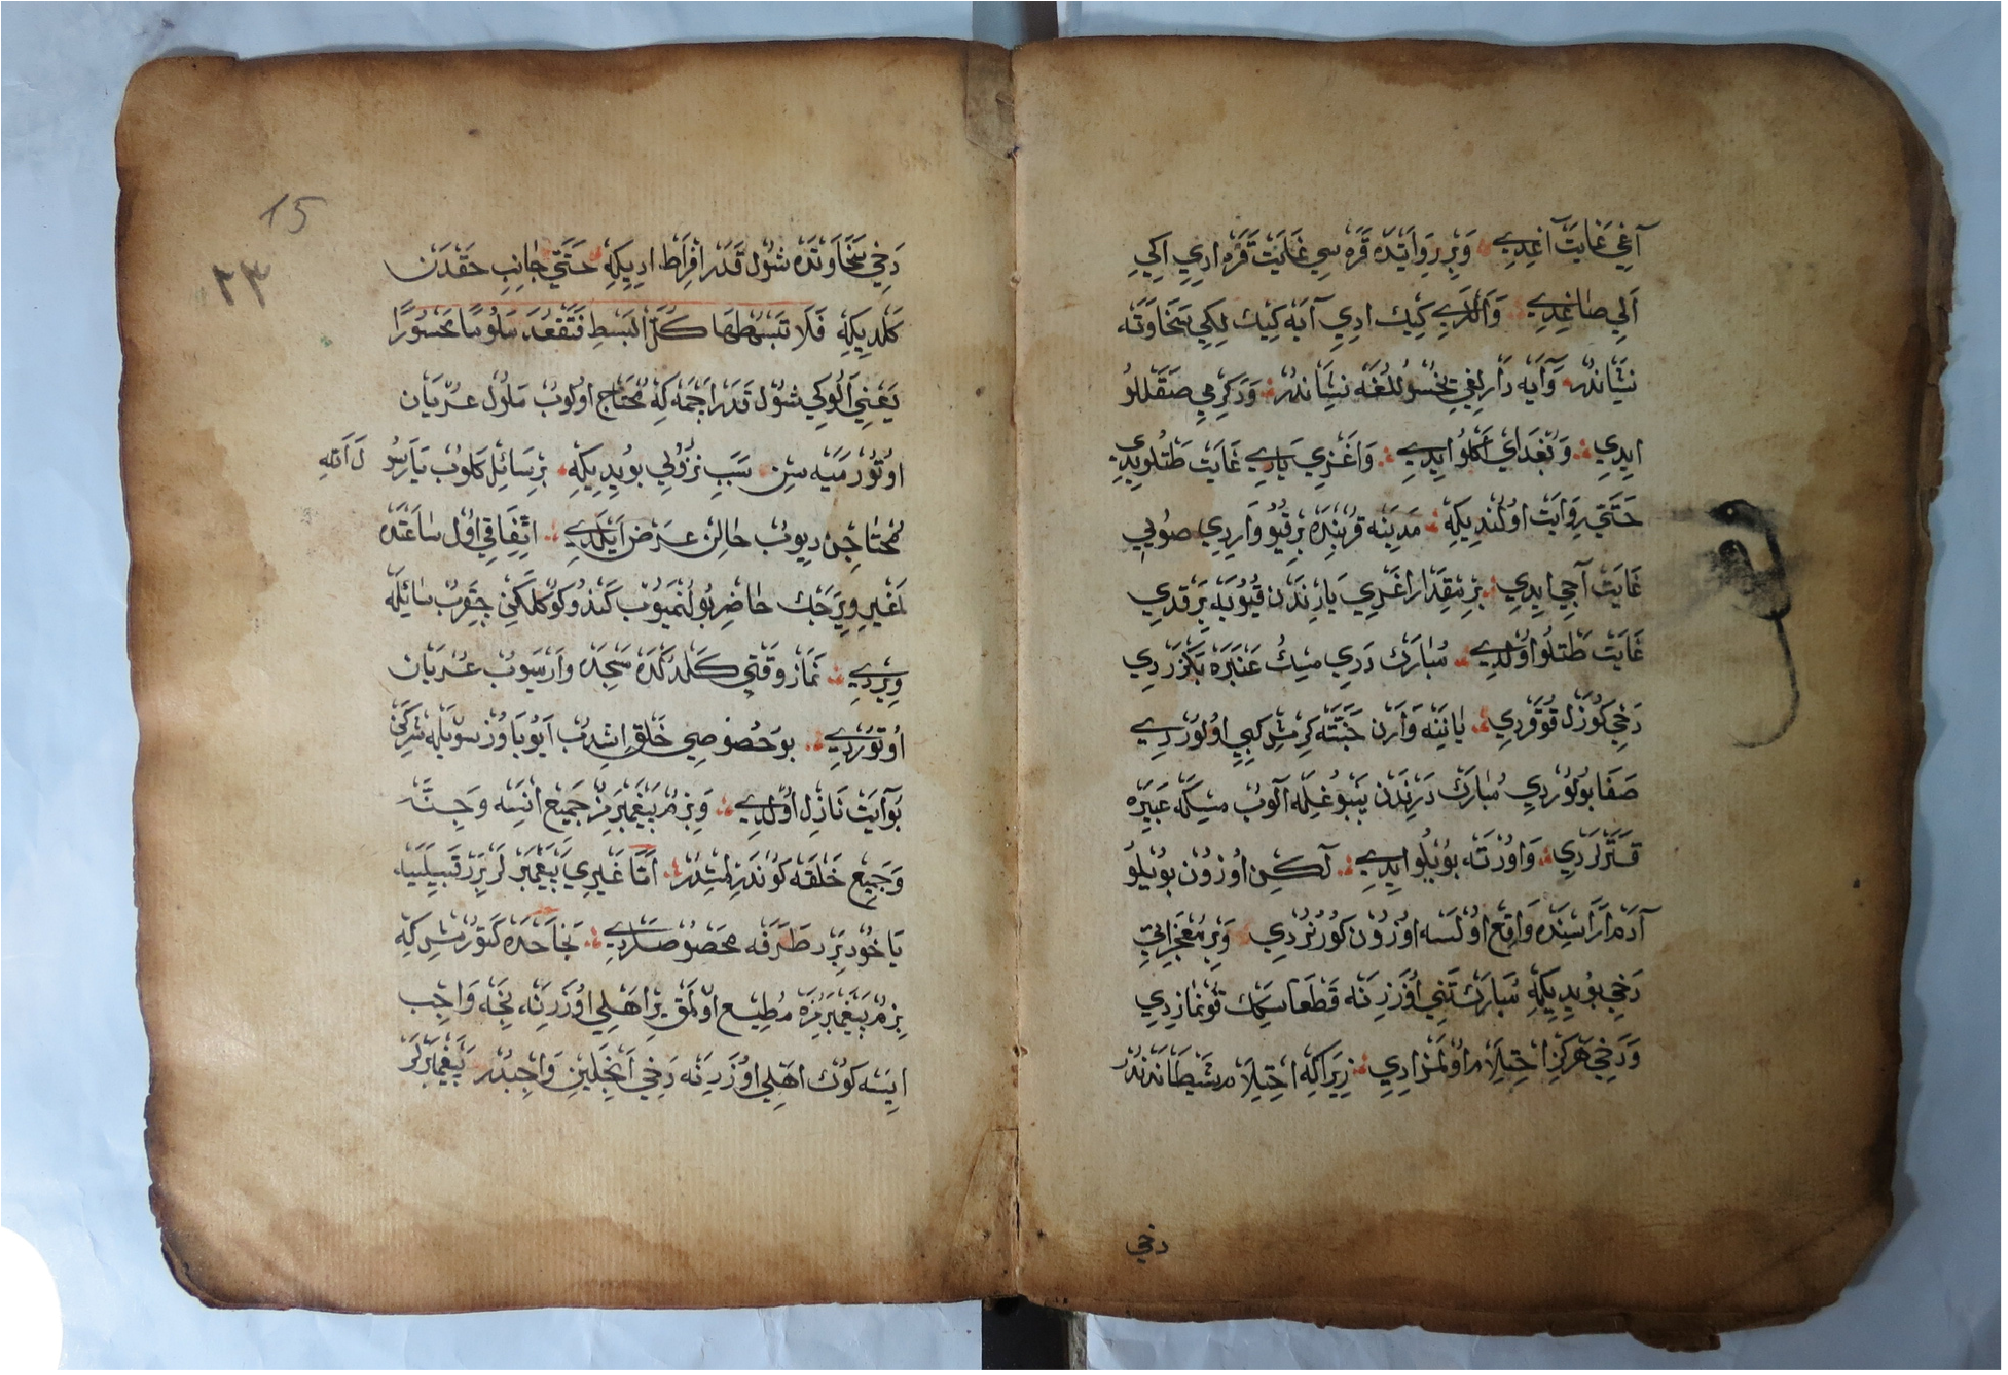 آغِي غَايَتْ آغِدِي وَبِرِ رِوَايَتْدَه قَرَه سِي غَايَتْ قَرَه ادِي اِكِي
اَلِي صَاغِدِي وَاَلْلَرِي كِيكْ ادِي آيَه كِيكْ لِكِي سَخَاوَتَه
نِشَانْدُرْ وَآيَه دَارْلِغِي بَخِسُولْلُغَه نِشَانْدُرْ وَدَكِرْمِي صَقَلْلُو
ايدِي وَبُغْدَاي اَكْلُو ايدِي وَاَغْزِي يَارِي غَايَتْ طَتْلُويِدِي
حَتَّي رِوَايَتْ اوُلُنْدِيكِه مَدِينَه قُرْبِنْدَه بِرْ قُيُو وَارِيدِي صُويِي
غَايَتْ آجِي ايِدِي بِرْ مِقْدَار اغْزِي يَارِنْدَنْ قُيُويَه بَرَقْدِي
غَايَتْ طَتْلُو اوُلْدِي مُبَارَكْ دَرِي مِيسْكْ عَنْبَرَه بَكْزَرْدِي
دَخِي كُوزَلْ قُوقَرْدِي يَانِنَه وَارَنْ جَنَّتَه كِرْمِشْ كِبِي اوُلُورْدِي
صَفَا بُولُورْدِي مُبَارَكْ دَرِنْدَنْ بَيُوغِلَه آلُوبْ مِيسْكَه عَبِيرَه
قَتَرْلَرْدِي وَاوُرْتَه بُويْلُو ايِدِي لَكِنْ اوُزُونْ بُويْلُو
آدَمْ آرَاسِنْدَه وَاقِعْ اوُلْسَه اوُزُونْ كُورُنُرْدِي وَبِرْ مُعْجِزَاتِي
دَخِي بُويِدِيكِه مُبَارَكْ تَنِي اوُزَرِنَه قَطْعَا سِكَكْ قُونْمَازِدِي
وَدَخِي هَرْكِزْ اِحْتِلَامْ اوُلْمَزْ ادِي زِيرَاكِه اِحْتِلَامْ شَيْطَانْدَنْدُرْ
دخي
15
٢٣
دَخِي سَخَاوَتْدَه شُولْ قَدَرْ اِفْرَاطْ ادِيكِه حَتَّي جَانِبِ حَقْدَنْ
كَلْدِيكِه فَلَا تَبْسُطْهَا كُلَّ الْبَسْطِ فَتَقْعُدَ مَلُومًا مَحْسُورًا
يَعْنِي اَلُوكِي شُولْ قَدَرْ اَجْمَه كِه مُحْتَاجْ اوُلُوبْ مَلُولْ عُرْيَانْ
اوُتُورْمَيَه سِنْ سَبَبِ نُزُولِي بُويِدِيكِه بِرْ سَائِلْ كَلُوبْ يَارَسُو
لَ اللّٰهِ
مُحْتَاجِنْ دِيوُبْ حَالِنْ عَرْضْ اَيْلَدِي اتِّفَاقِي اوُلْ سَاعَتْدَه
غَيْرِ وِيرَجَكْ حَاضِرْ بُولُنْمَيُوبْ كَنْدُو كُوكْلَكِنْ جِقَرُبْ سَائِلَه
وِيرْدِي نَمَازْ وَقْتِي كَلْدُكْدَه مَسْجِدَه وَارْمَيُوبْ عُرْيَانْ
اوُتُورْدِي بُو حُصُوصِي خَلْقْ اِشِدُبْ
بُو آيَتْ نَازِلْ اوُلْدِي وَبِزُمْ پَيْغَمْبَرِمِزْ جَمِيعِ اِنْسَه وَجِنَّه
وَجَمِيعِ خَلْقَه كُونْدَرِلْمِشْدُرْ اَمَّا غَيْرِي پَيْغَمْبَرْلَرْ بِرَرْ قَبِيلَيَه
يَاخُودْ بِرَرْ طَرَفَه مَخْصُوصْلَرْدِي كِه
بِزُمْ پَيْغَمْبَرِمِزَه مُطِيعْ اوُلْمَقْ يِرْ اَهْلِي اوُزَرِنَه نِجَه وَاجِبْ
ايسَه كُوكْ اَهْلِي اوُزَرِنَه دَخِي اَنْجِلَيِنْ وَاجِبْدُرْ پَيْغَمْبَرْلَرْ